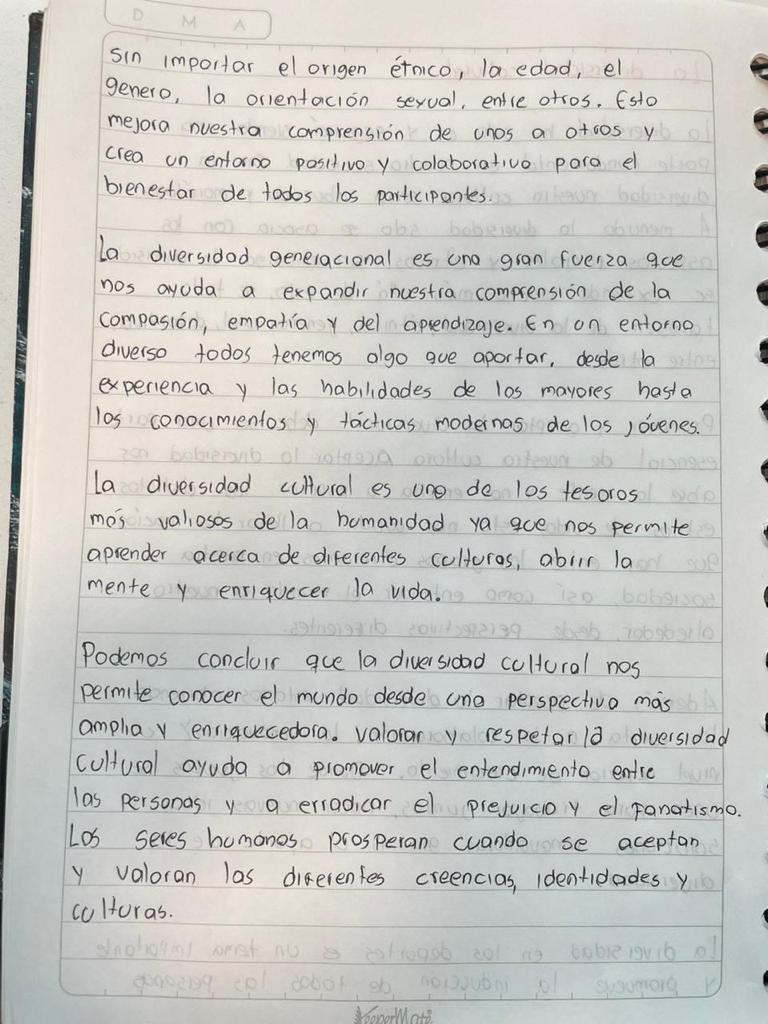 D M A
sin importar el origen étnico, la edad, el
genero, la orientación sexual, entre otros. Esto
mejora nuestra comprensión de unos a otros y
crea un entorno positivo y colaborativo para el
bienestar de todos los participantes.
La diversidad generacional es una gran fuerza que
nos ayuda a expandir nuestra comprensión de la
compasión, empatía y del aprendizaje. En un entorno
diverso todos tenemos algo que aportar, desde la
experiencia y las habilidades de los mayores hasta
los conocimientos y tácticas modernas de los jóvenes.
La diversidad cultural es uno de los tesoros
más valiosos de la humanidad ya que nos permite
aprender acerca de diferentes culturas, abrir la
mente y enriquecer la vida.
Podemos concluir que la diversidad cultural nos
permite conocer el mundo desde una perspectiva más
amplia y enriquecedora. Valorar y respetar la diversidad
cultural ayuda a promover el entendimiento entre
las personas y a erradicar el prejuicio y el fanatismo.
Los seres humanos prosperan cuando se aceptan
y valoran las diferentes creencias, identidades y
culturas.
KeeperMate